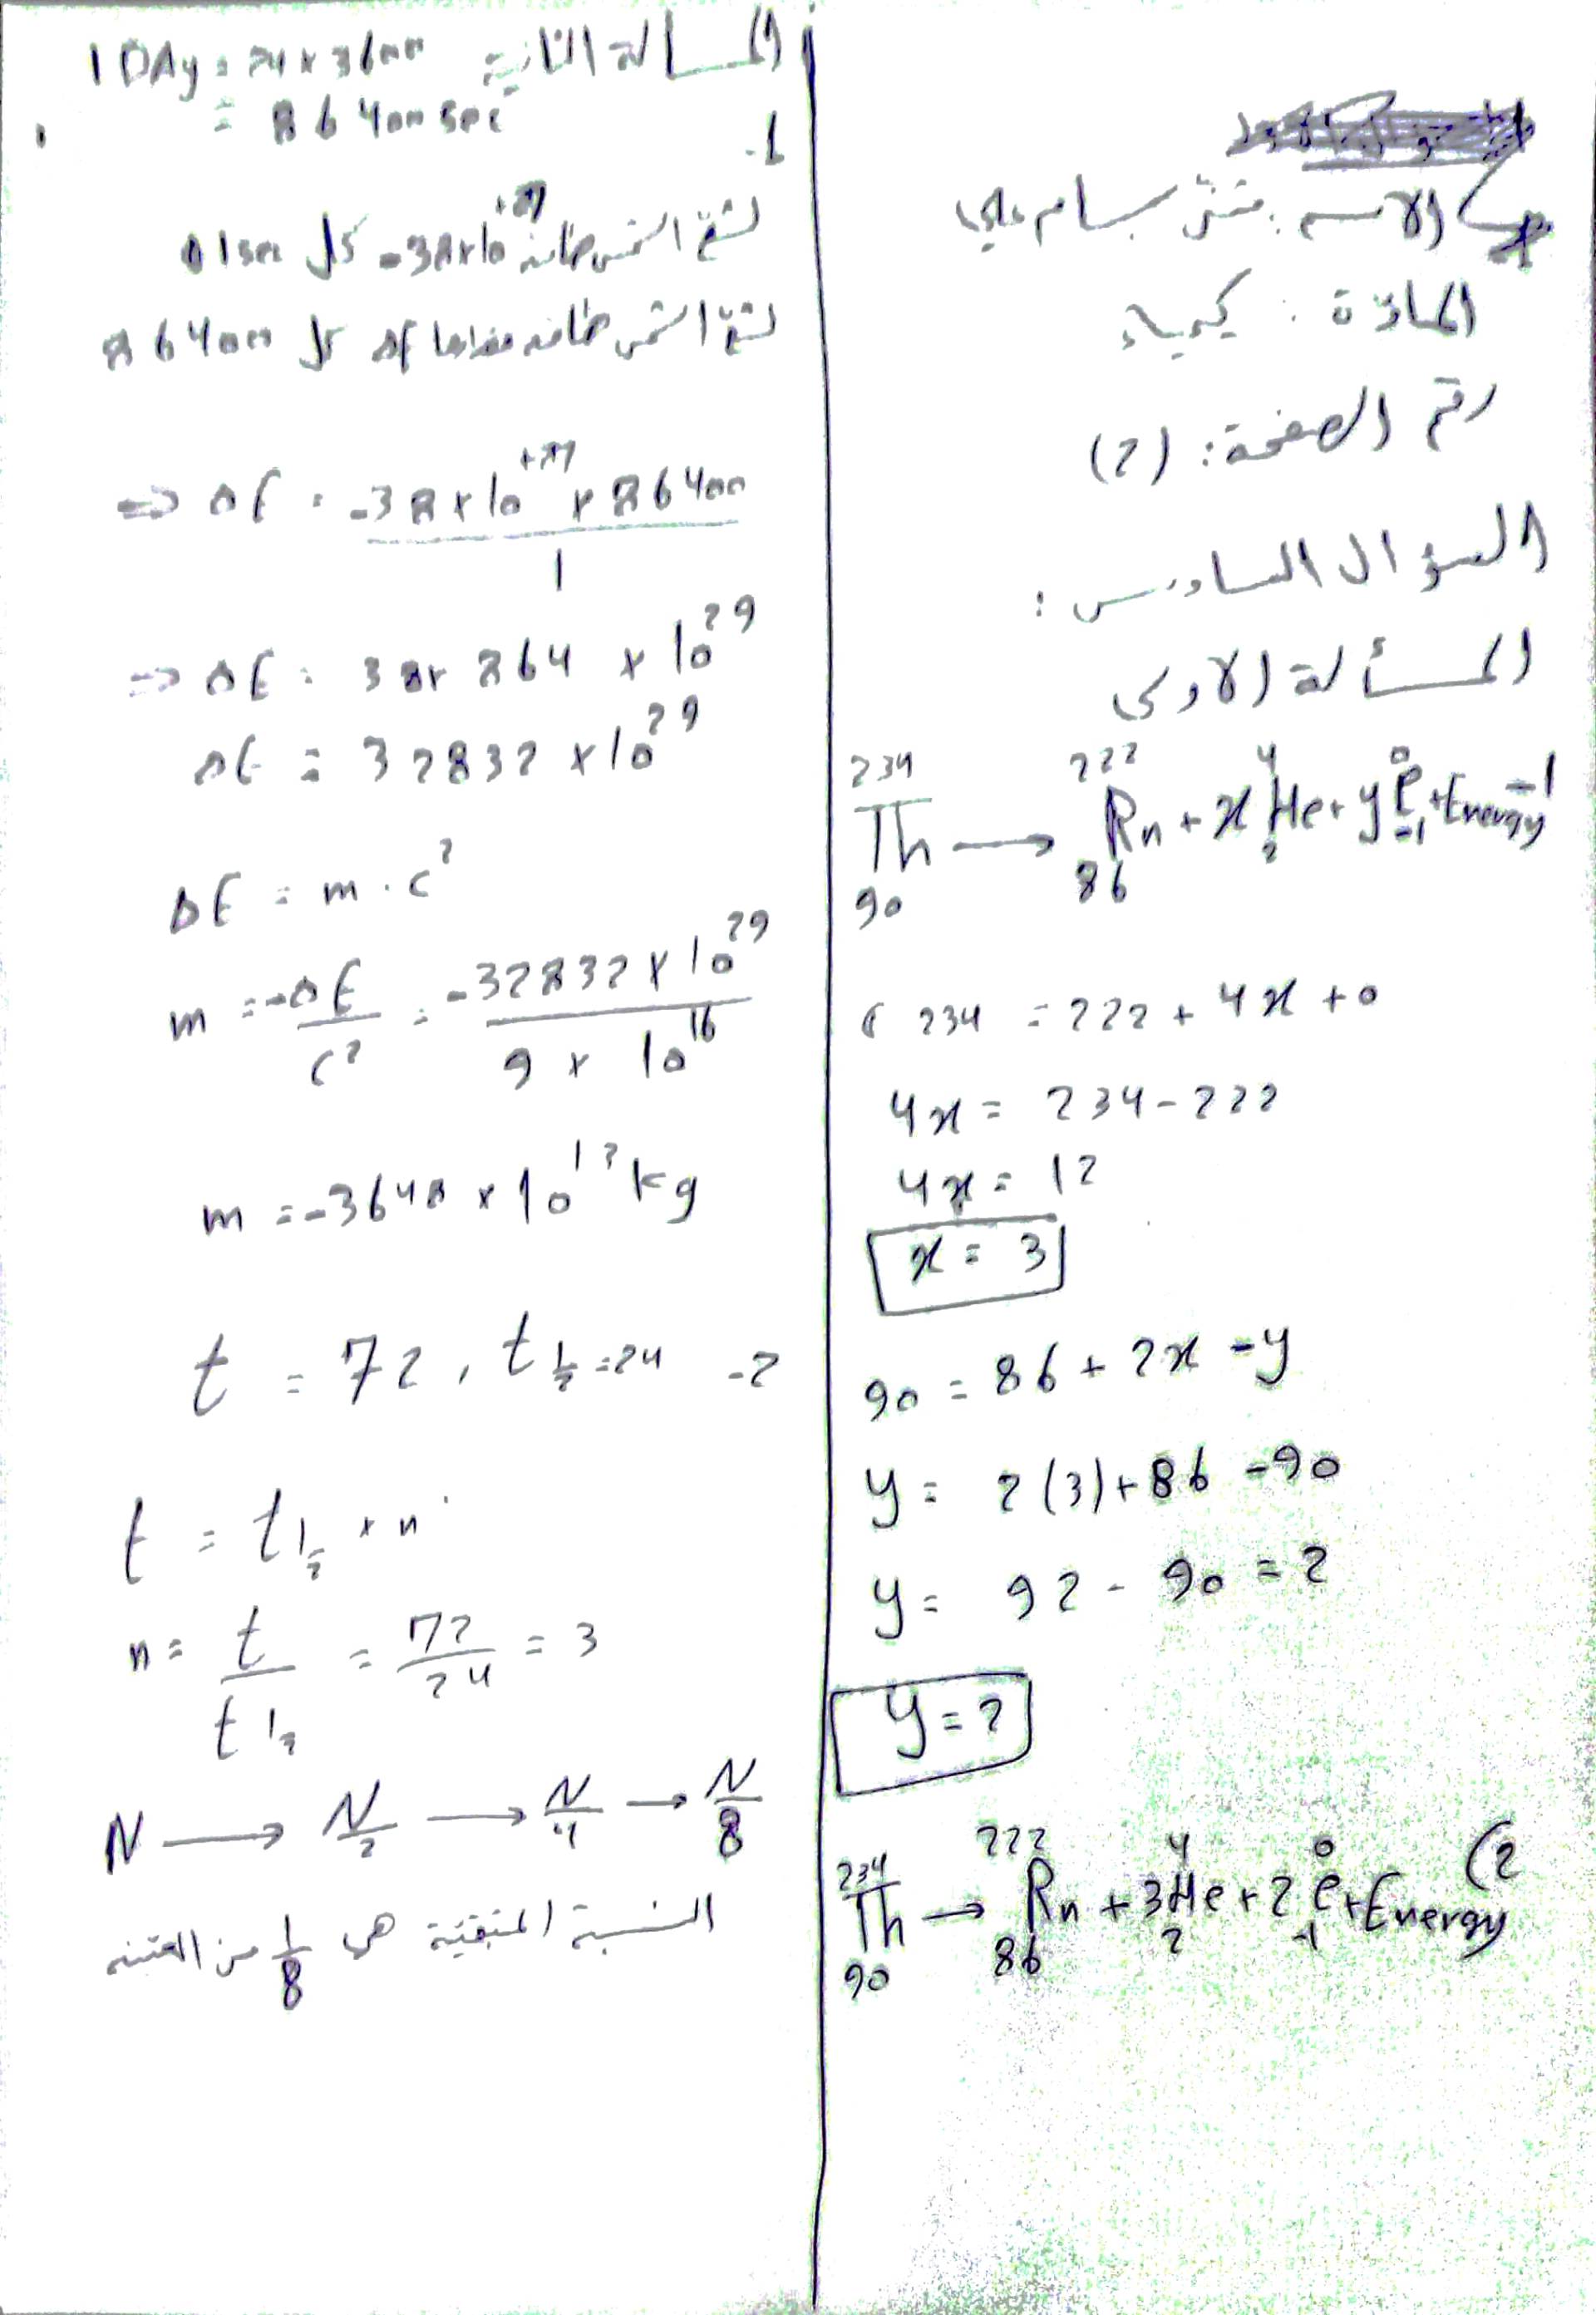 الاسم: بسام علي
المادة: كيمياء
رقم الصفحة: (2)
السؤال السادس:
المسألة الاولى
1-
²³⁴₉₀Th → ²²²₈₆Rn + x ⁴₂He + y ⁰₋₁e + Energy
234 = 222 + 4x + 0
4x = 234 - 222
4x = 12
x = 3
90 = 86 + 2x - y
y = 2(3) + 86 - 90
y = 92 - 90 = 2
y = 2
(2
²³⁴₉₀Th → ²²²₈₆Rn + 3 ⁴₂He + 2 ⁰₋₁e + Energy
المسألة الثانية
1 DAy = 24 x 3600
= 86400 sec
1-
تشع الشمس طاقة -38x10⁺²⁷ كل 1 sec
تشع الشمس طاقة مقدارها ΔE كل 86400
⇒ ΔE = -38 x 10⁺²⁷ x 86400 / 1
⇒ ΔE = 38 x 864 x 10²⁹
ΔE = 32832 x 10²⁹
ΔE = m . c²
m = -ΔE / c² = -32832 x 10²⁹ / 9 x 10¹⁶
m = -3648 x 10¹² kg
2- t = 72 , t½ = 24
t = t½ x n
n = t / t½ = 72 / 24 = 3
N → N/2 → N/4 → N/8
النسبة المتبقية هي 1/8 من العينة